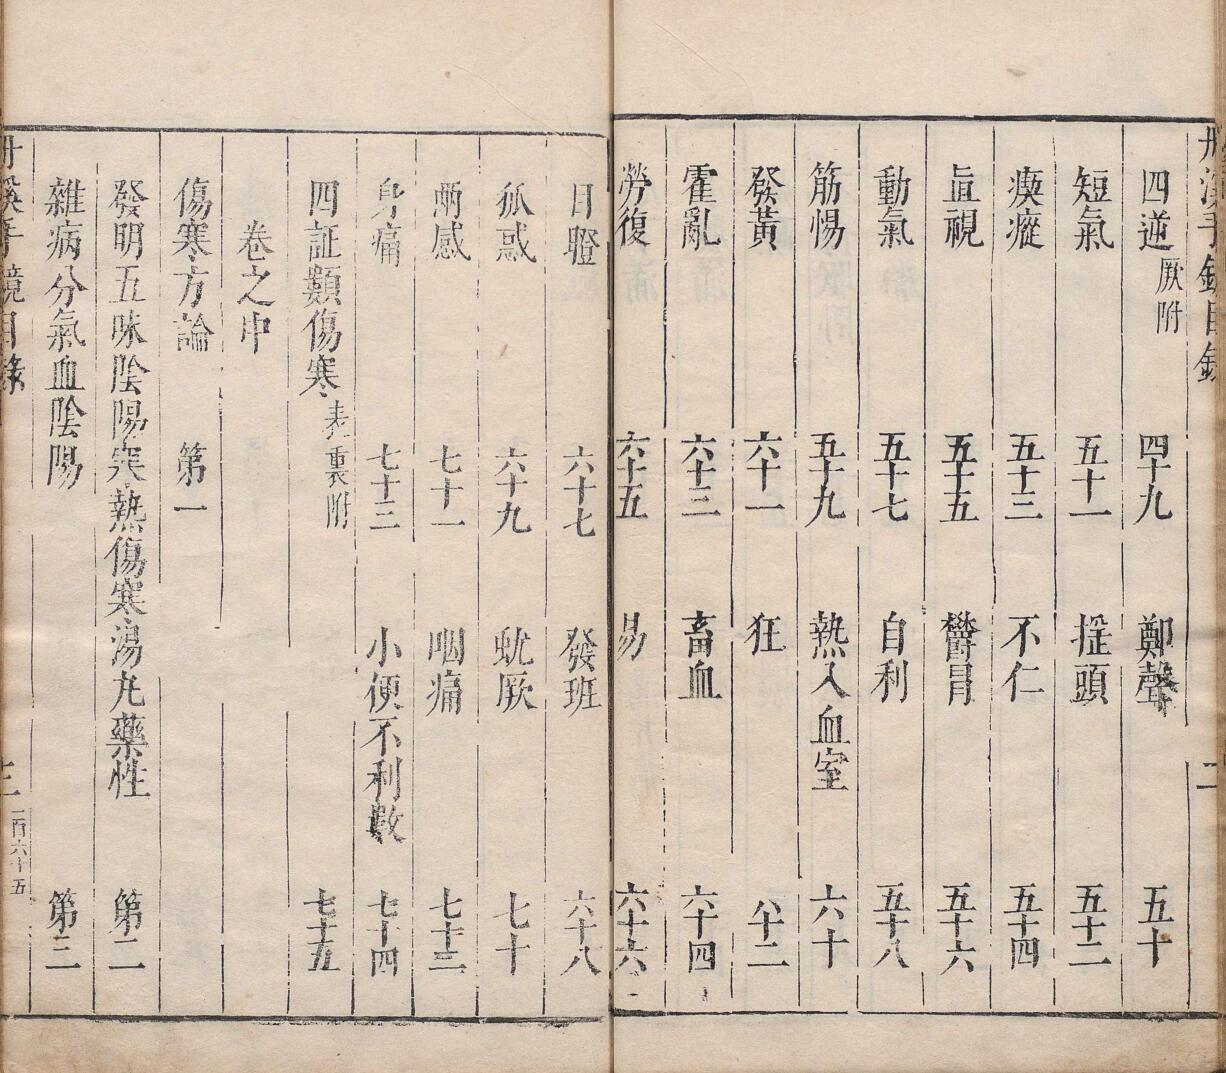 丹溪手鏡目錄 二
四逆 厥附 四十九 鄭聲 五十
短氣 五十一 搖頭 五十二
瘈瘲 五十三 不仁 五十四
直視 五十五 鬱冒 五十六
動氣 五十七 自利 五十八
筋惕 五十九 熱入血室 六十
發黃 六十一 狂 六十二
霍亂 六十三 畜血 六十四
勞復 六十五 易 六十六
目瞪 六十七 發班 六十八
狐惑 六十九 蚘厥 七十
兩感 七十一 咽痛 七十二
身痛 七十三 小便不利數 七十四
四証類傷寒 表裏附 七十五
卷之中
傷寒方論 第一
發明五味陰陽寒熱傷寒湯丸藥性 第二
雜病分氣血陰陽 第三
丹溪手鏡目錄 三 一百六十五